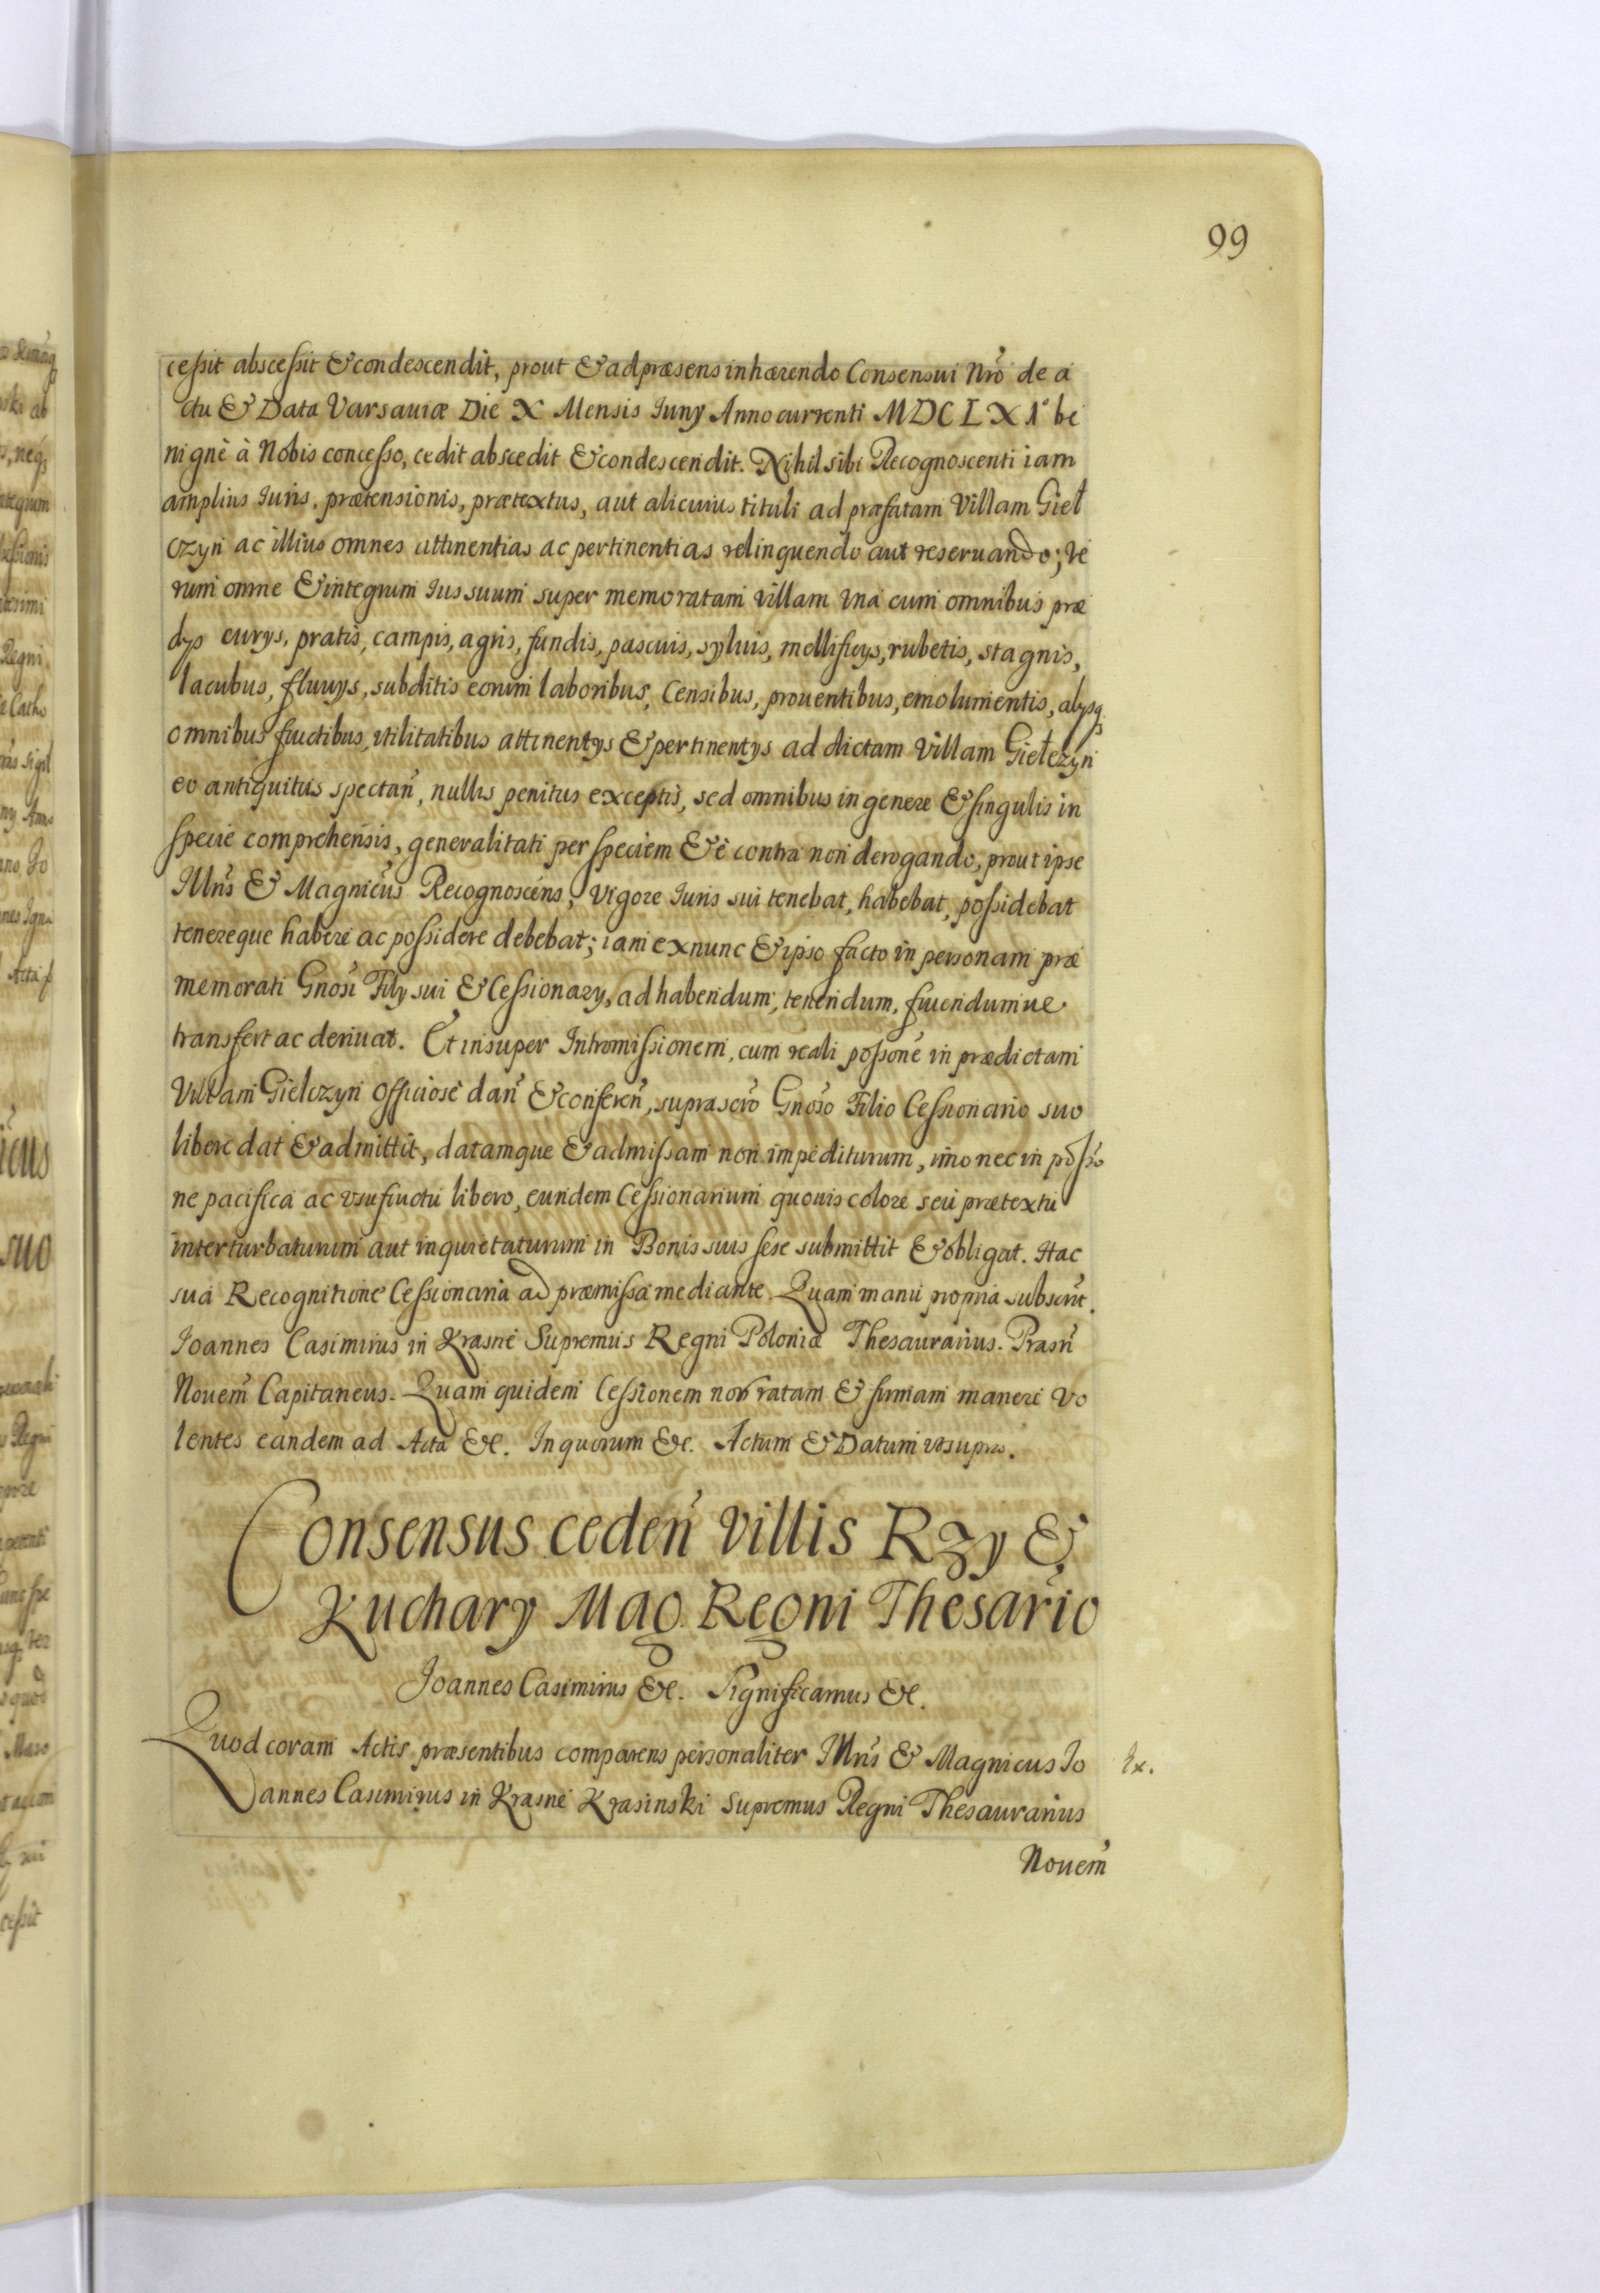 99
cessit abscessit & condescendit, prout & ad præsens inhærendo Consensui Nrõ de a
ctu & Data Varsaviæ Die X Mensis Iuny Anno currenti MDCLX1° be
nignè à Nobis concesso, cedit abscedit & condescendit. Nihil sibi Recognoscenti iam
amplius Iuris, prætensionis, prætextus, aut alicuius tituli ad præfatam Villam Gieł
czyn ac illius omnes attinentias ac pertinentias relinquendo aut reseruando; ve
rum omne & integrum Ius suum super memoratam villam vna cum omnibus præ
dys curys, pratis, campis, agris, fundis, pascuis, syluis, mellificys, rubetis, stagnis,
lacubus, fluuys, subditis eorum laboribus, Censibus, prouentibus, emolumentis, alysq
omnibus fructibus, vtilitatibus attinentys & pertinentys ad dictam Villam Giełczyn
eo antiquitus spectañ, nullis penitus exceptis, sed omnibus in genere & singulis in
specie comprehensis, generalitati per speciem & è contra non derogando, prout ipse
Illrĩs & Magnicus Recognoscens, Vigore Iuris sui tenebat, habebat, possidebat
tenereque habere ac possidere debebat; iam ex nunc & ipso facto in personam præ
memorati Gnosi Fily sui & Cessionary, ad habendum, tenendum, fruendumve
transfert ac deriuat. Et insuper Intromissionem, cum reali possoné in prædictam
Villam Giełczyn Officiose dañ & confereñ, suprascrõ Gnoso Filio Cessionario suo
libere dat & admittit, datamque & admissam non impediturum, imo nec in possõ
ne pacifica ac vsufructu libero, eundem Cessionarium quouis colore seu prætextu
interturbaturum aut inquietaturum in Bonis suis sese submittit & obligat. Hac
sua Recognitione Cessionaria ad præmissa mediante. Quam manu propria subscrit.
Ioannes Casimirus in Krasne Supremus Regni Poloniæ Thesaurarius. Prasñ
Nouem̃ Capitaneus. Quam quidem Cessionem nos ratam & firmam manere vo
lentes eandem ad Acta &c. In quorum &c. Actum & Datum vt supra.
Consensus cedeñ Villis Rzy &
Kuchary Mag. Regni Thesarĩo
Joannes Casimirus &c. Significamus &c.
Quod coram Actis præsentibus comparens personaliter Illrĩs & Magnicus Io
annes Casimirus in Krasne Krasinski Supremus Regni Thesaurarius
Ex.
Nouem̃